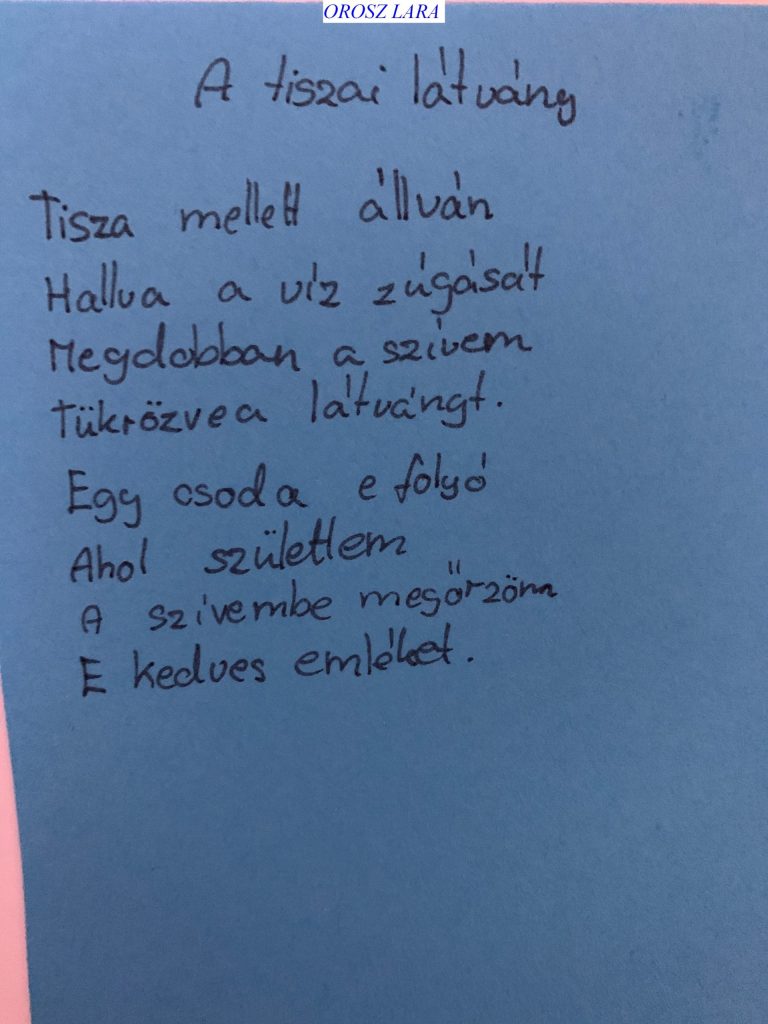 OROSZ LARA
A tiszai látvány
Tisza mellett állván
Hallva a víz zúgását
Megdobban a szívem
Tükrözve a látvángt.
Egy csoda e folyó
Ahol születtem
A szívembe megőrzöm
E kedves emléket.